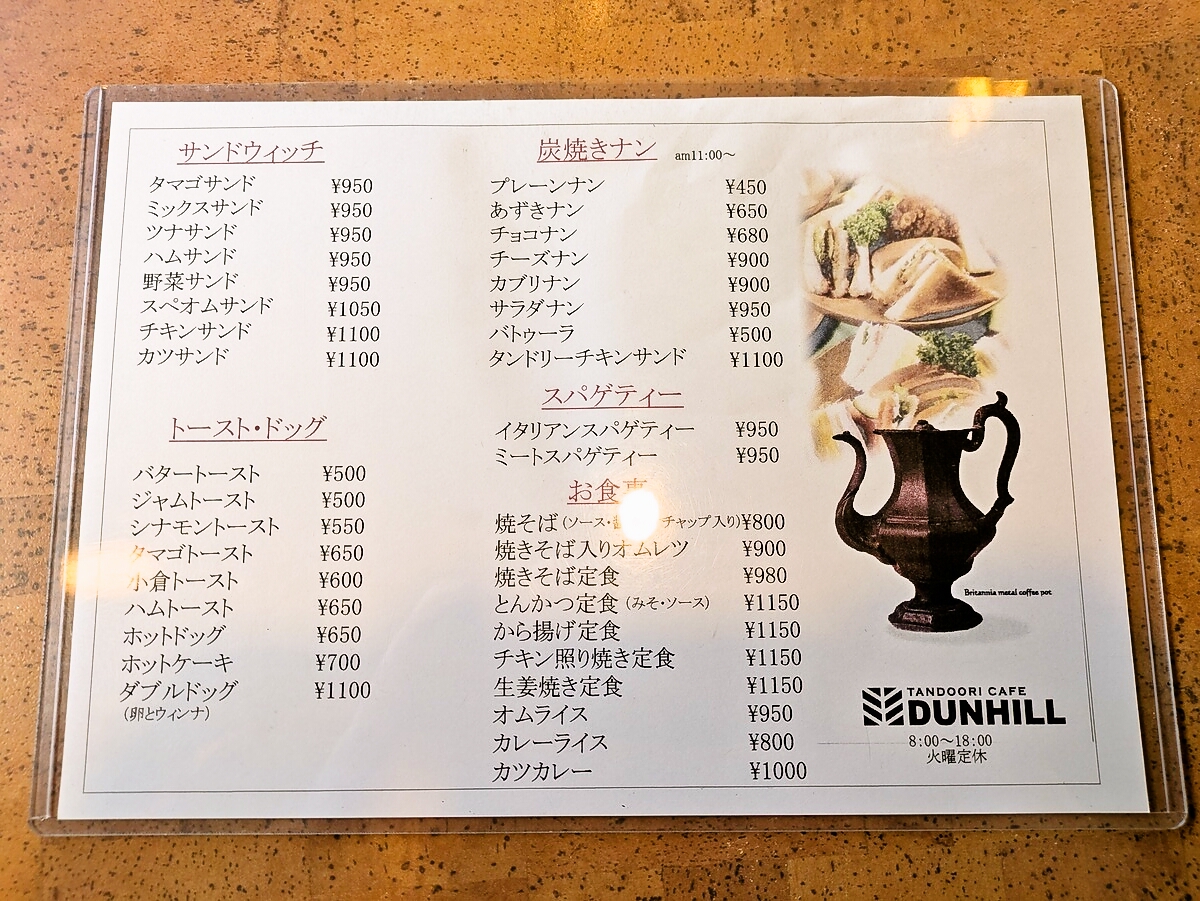 サンドウィッチ
タマゴサンド ¥950
ミックスサンド ¥950
ツナサンド ¥950
ハムサンド ¥950
野菜サンド ¥950
スペオムサンド ¥1050
チキンサンド ¥1100
カツサンド ¥1100
トースト・ドッグ
バタートースト ¥500
ジャムトースト ¥500
シナモントースト ¥550
タマゴトースト ¥650
小倉トースト ¥600
ハムトースト ¥650
ホットドッグ ¥650
ホットケーキ ¥700
ダブルドッグ ¥1100
(卵とウィンナ)
炭焼きナン am11:00～
プレーンナン ¥450
あずきナン ¥650
チョコナン ¥680
チーズナン ¥900
カブリナン ¥900
サラダナン ¥950
バトゥーラ ¥500
タンドリーチキンサンド ¥1100
スパゲティー
イタリアンスパゲティー ¥950
ミートスパゲティー ¥950
お食事
焼そば (ソース・ チャップ入り) ¥800
焼きそば入りオムレツ ¥900
焼きそば定食 ¥980
とんかつ定食 (みそ・ソース) ¥1150
から揚げ定食 ¥1150
チキン照り焼き定食 ¥1150
生姜焼き定食 ¥1150
オムライス ¥950
カレーライス ¥800
カツカレー ¥1000
Britannia metal coffee pot
TANDOORI CAFE
DUNHILL
8:00～18:00
火曜定休